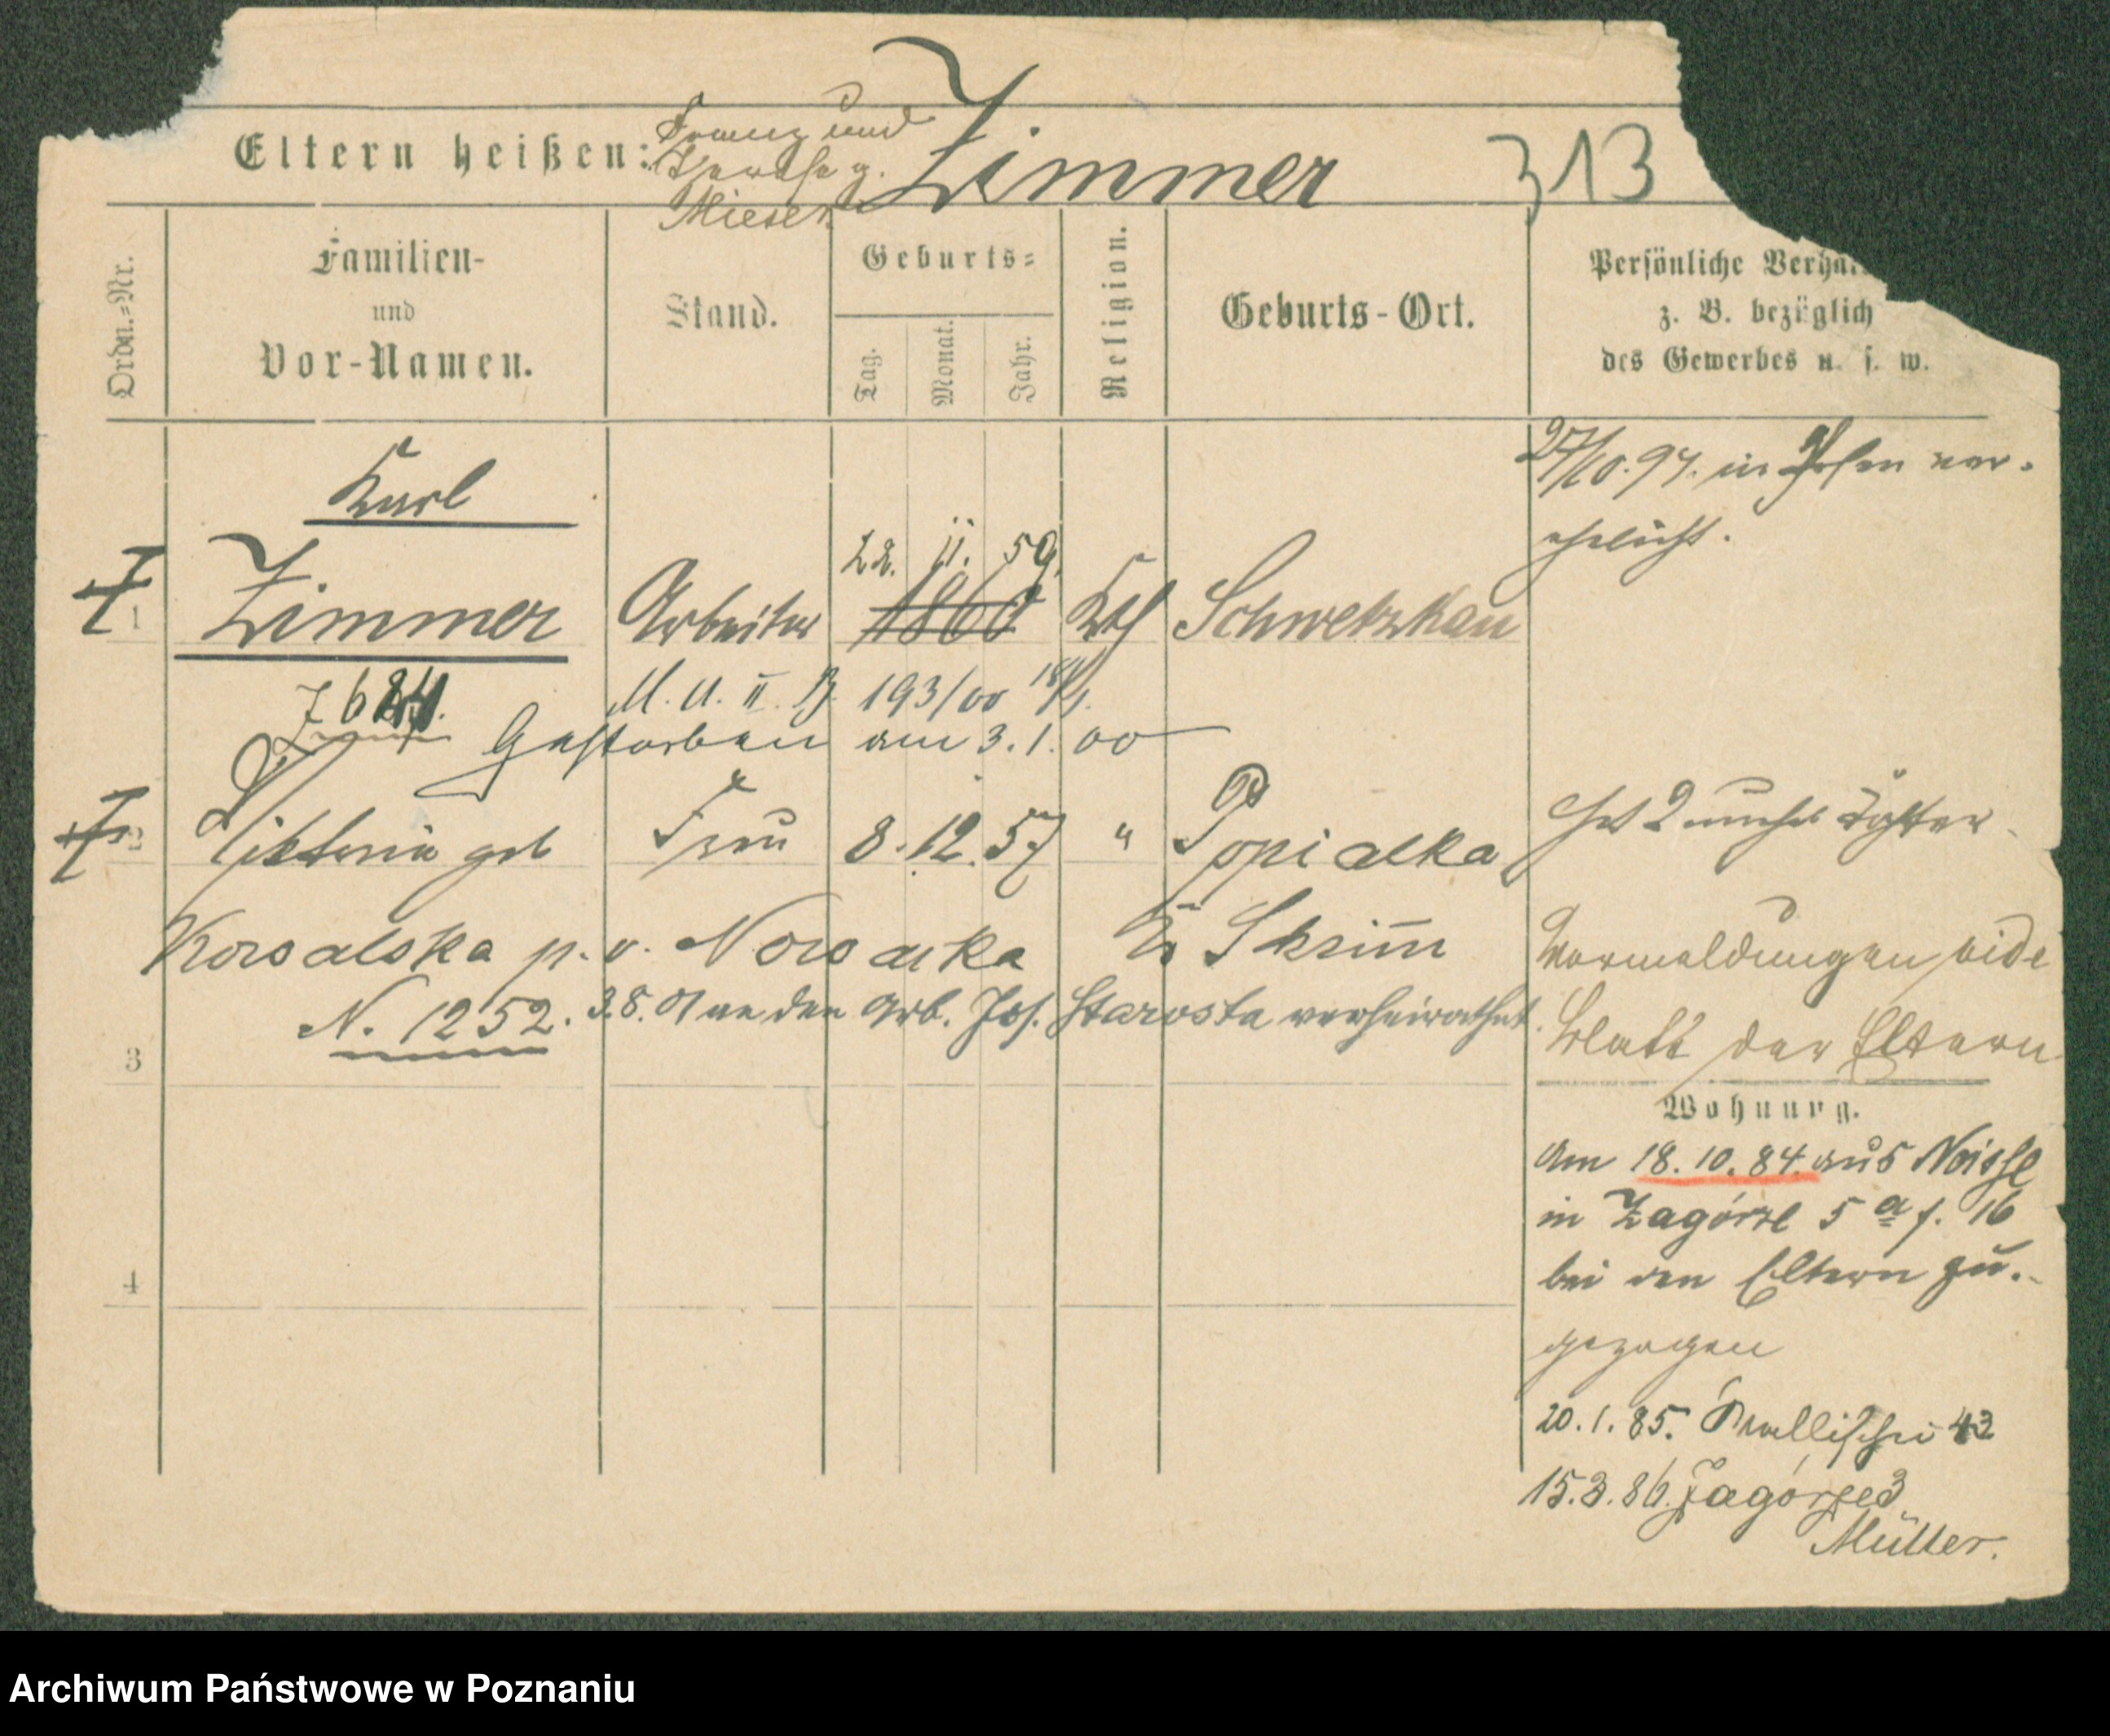 Eltern heißen: Franz und
Therese g.
Mieser
Zimmer 313
Ordn.=Nr.
Familien-
und
Vor-Namen.
Stand.
Geburts=
Tag. Monat. Jahr.
Religion.
Geburts-Ort.
Persönliche
z. B. bezüglich
des Gewerbes u. s. w.
Karl
27/10. 97. in Posen ver-
ehelicht.
22. 11. 59.
1 Zimmer Arbeiter 1860 Kth Schwetzkau
M. U. II. B. 193/00 18/1.
Gestorben am 3. 1. 00
2 Viktoria geb Frau 8. 12. 57 " Popialka
hat 2 unehel Töchter
Kowalska p. v. Nowacka Kr Skrimm
Vormeldungen vide
N. 1252. 3.8.01 an den Arb. Jos. Starosta verheirathet.
Blatt der Eltern
3
Wohnung.
Am 18. 10. 84. aus Neisse
in Zagórze 5 a f. 16
bei den Eltern zu-
4
gezogen
20. 1. 85. Wallischei 43
15. 3. 86. Zagórze 3
Müller.
Archiwum Państwowe w Poznaniu